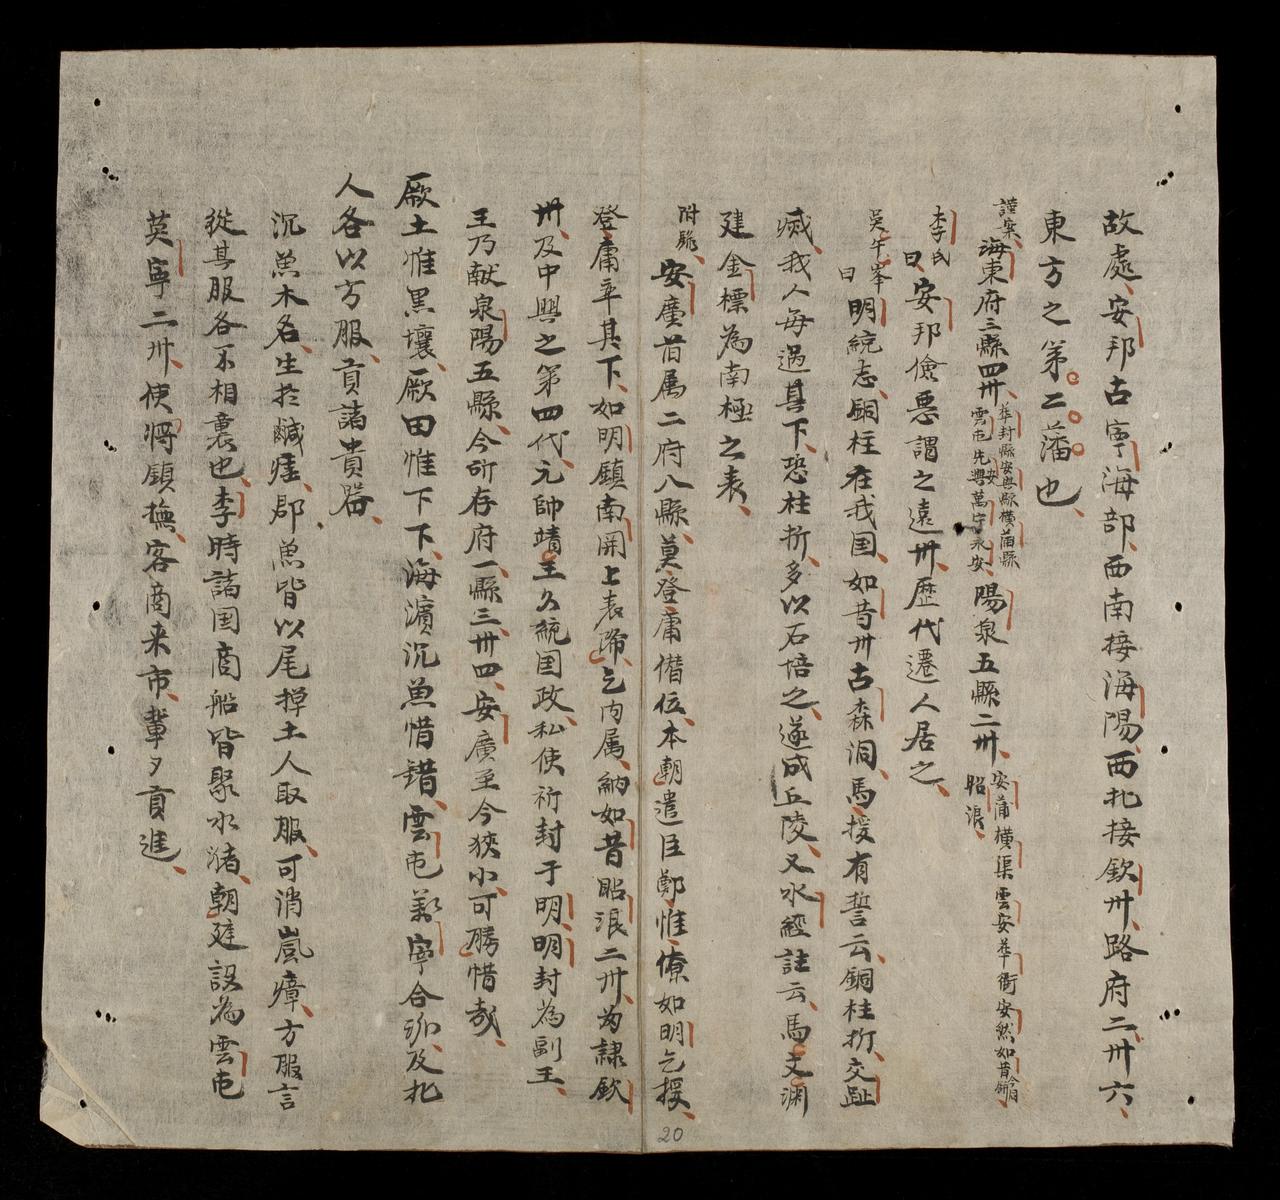 故處安邦古寧海部西南接海陽西北接欽卅路府二卅六
東方之第二藩也
謹案海東府三縣四卅華封縣安興縣橫蒲縣雲屯先安興萬宁永安陽泉五縣二卅安蒲橫渠雲安華衝安然如昔
李氏曰安邦儉惡謂之遠卅歷代遷人居之
吳午峯曰明統志銅柱在我国如昔卅古森洞馬援有誓云銅柱折交趾
滅我人每過其下恐柱折多以石培之遂成丘陵又水經註云馬文渊
建金標為南極之表
附歷安廣昔属二府八縣莫登庸僭位本朝遣臣鄭惟僚如明乞援
登庸率其下如明鎮南開上表降乞内属納如昔昭浪二卅為隷欽
卅及中興之第四代元帥靖王久統国政私使祈封于明明封為副王
王乃献泉陽五縣今所存府一縣三卅四安廣至今狹小可勝惜哉
厥土惟黒壤厥田惟下下海濵沉魚惜錯雲屯羕寧合珈及北
人各以方服貢諸貴器
沉魚木名生於鹹痽郡魚皆以尾掉土人取服可消嵐瘴方服言
從其服各不相襲也李時諸国商船皆聚水渚朝廷設為雲屯
英寧二卅使將鎮撫客商来市輩夕貢進